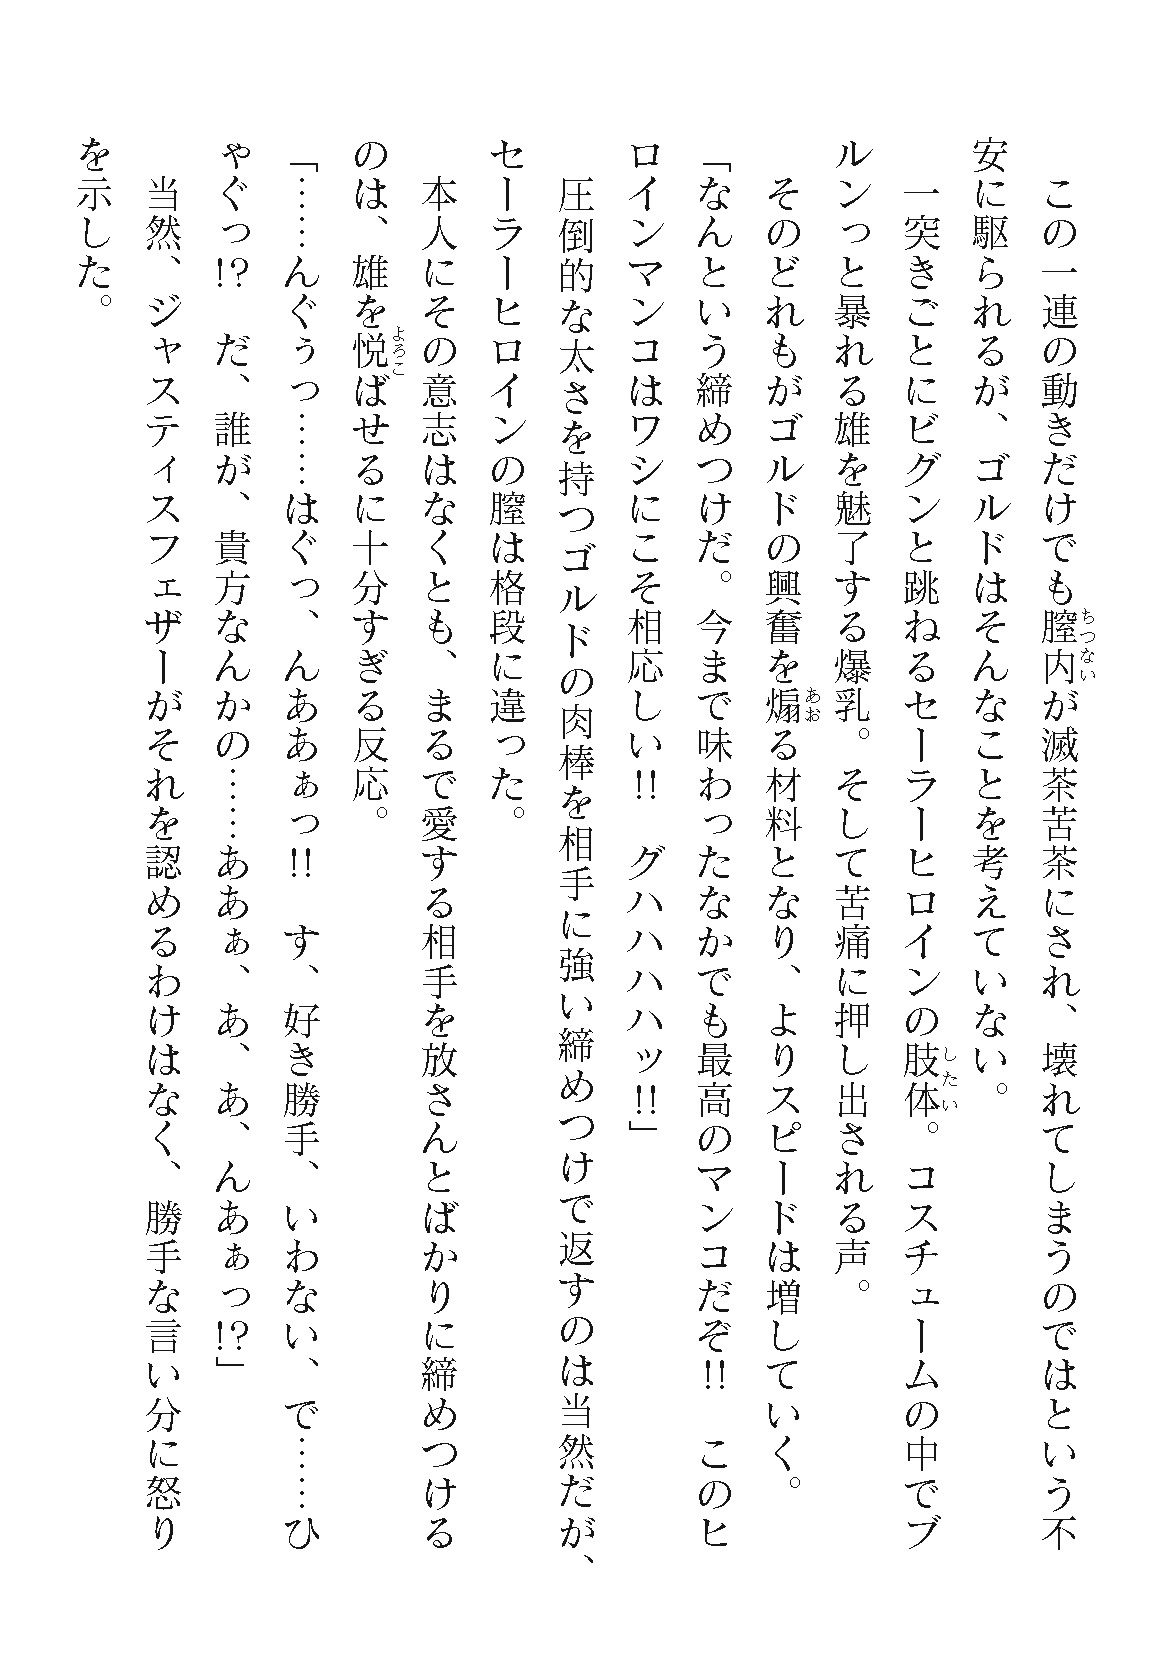 ちつない
この一連の動きだけでも膣内が滅茶苦茶にされ、壊れてしまうのではという不
安に駆られるが、ゴルドはそんなことを考えていない。
したい
一突きごとにビグンと跳ねるセーラーヒロインの肢体。コスチュームの中でブ
ルンっと暴れる雄を魅了する爆乳。そして苦痛に押し出される声。
あお
そのどれもがゴルドの興奮を煽る材料となり、よりスピードは増していく。
「なんという締めつけだ。今まで味わったなかでも最高のマンコだぞ!!　このヒ
ロインマンコはワシにこそ相応しい!!　グハハハハッ!!」
圧倒的な太さを持つゴルドの肉棒を相手に強い締めつけで返すのは当然だが、
セーラーヒロインの膣は格段に違った。
本人にその意志はなくとも、まるで愛する相手を放さんとばかりに締めつける
よろこ
のは、雄を悦ばせるに十分すぎる反応。
「……んぐぅっ……はぐっ、んああぁっ!!　す、好き勝手、いわない、で……ひ
ゃぐっ!?　だ、誰が、貴方なんかの……ああぁ、あ、あ、んあぁっ!?」
当然、ジャスティスフェザーがそれを認めるわけはなく、勝手な言い分に怒り
を示した。